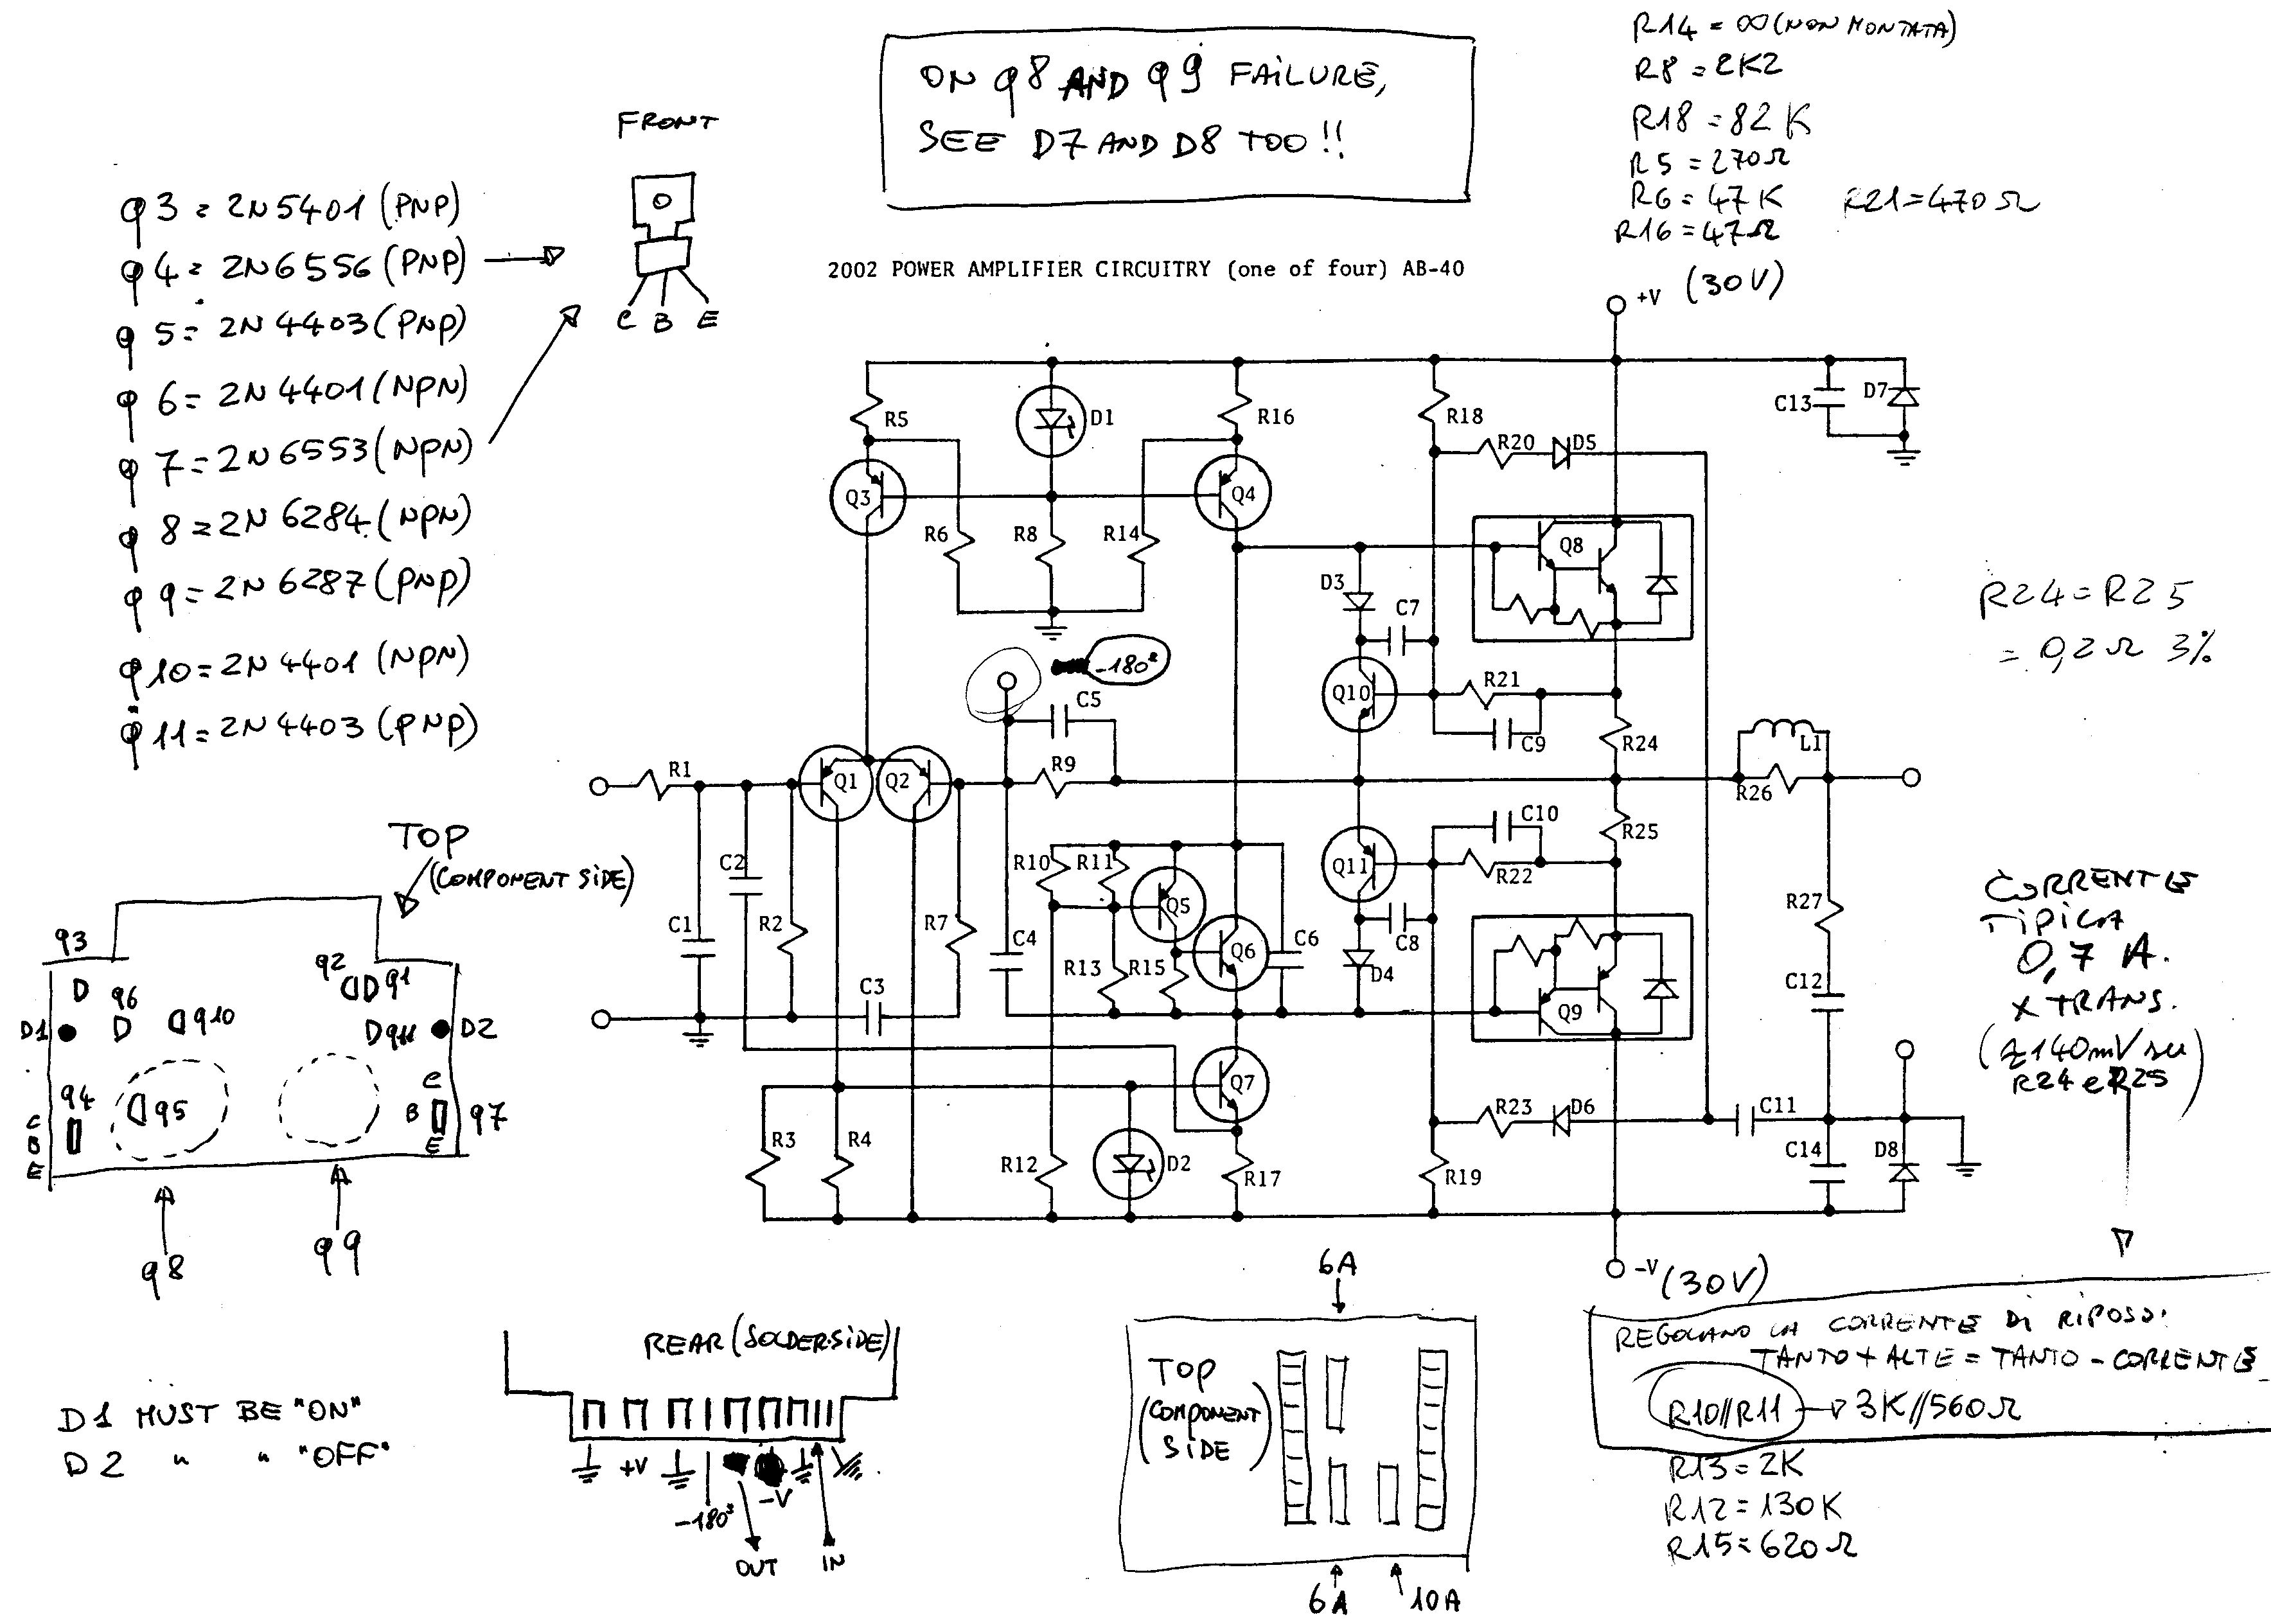 ON Q8 AND Q9 FAILURE,
SEE D7 AND D8 TOO!!
R14 = ∞ (NON MONTATA)
R8 = 2K2
R18 = 82K
R5 = 270Ω
R6 = 47K
R21 = 470Ω
R16 = 47Ω
FRONT
C B E
Q3 = 2N5401 (PNP)
Q4 = 2N6556 (PNP)
Q5 = 2N4403 (PNP)
Q6 = 2N4401 (NPN)
Q7 = 2N6553 (NPN)
Q8 = 2N6284 (NPN)
Q9 = 2N6287 (PNP)
Q10 = 2N4401 (NPN)
Q11 = 2N4403 (PNP)
2002 POWER AMPLIFIER CIRCUITRY (one of four) AB-40
+V (30V)
R5
D1
R16
R18
C13
D7
R20
D5
Q3
Q4
R6
R8
R14
Q8
D3
C7
-180°
Q10
R21
C5
C9
R24
L1
R1
Q1
Q2
R9
R26
R24 = R25
= 0,2Ω 3%
C10
R25
C2
R10
R11
Q11
R22
Q5
R27
C1
R2
R7
C4
Q6
C6
C8
R13
R15
D4
C3
C12
Q9
Q7
R23
D6
C11
R3
R4
R12
D2
R17
R19
C14
D8
-V (30V)
CORRENTE
TIPICA
0,7 A.
X TRANS.
(±140mV su
R24 e R25)
TOP
(COMPONENT SIDE)
Q3
Q2
Q1
Q6
Q10
D1
Q11
D2
Q4
Q5
C
B
E
C
B
E
Q7
Q8
Q9
D1 MUST BE "ON"
D2 " " "OFF"
REAR (SOLDERSIDE)
+V
-180°
-V
OUT
IN
6A
TOP
(COMPONENT
SIDE)
6A
10A
REGOLANO LA CORRENTE DI RIPOSO:
TANTO + ALTE = TANTO - CORRENTE
R10//R11 → 3K//560Ω
R13 = 2K
R12 = 130K
R15 = 620Ω